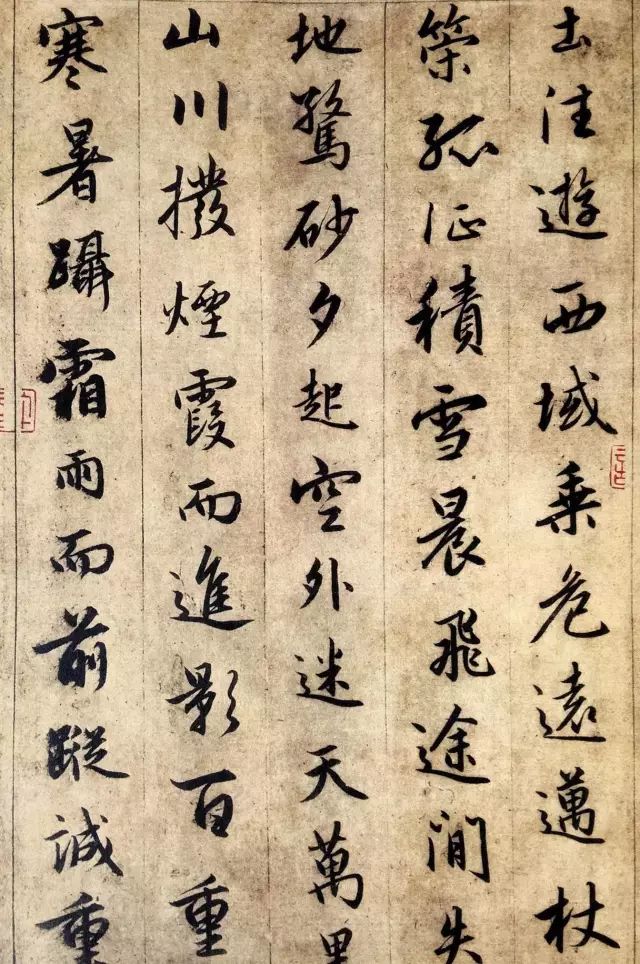 土往遊西域乘危遠邁杖
策孤征積雪晨飛途間失
地驚砂夕起空外迷天萬里
山川撥煙霞而進影百重
寒暑躡霜雨而前蹤誠重